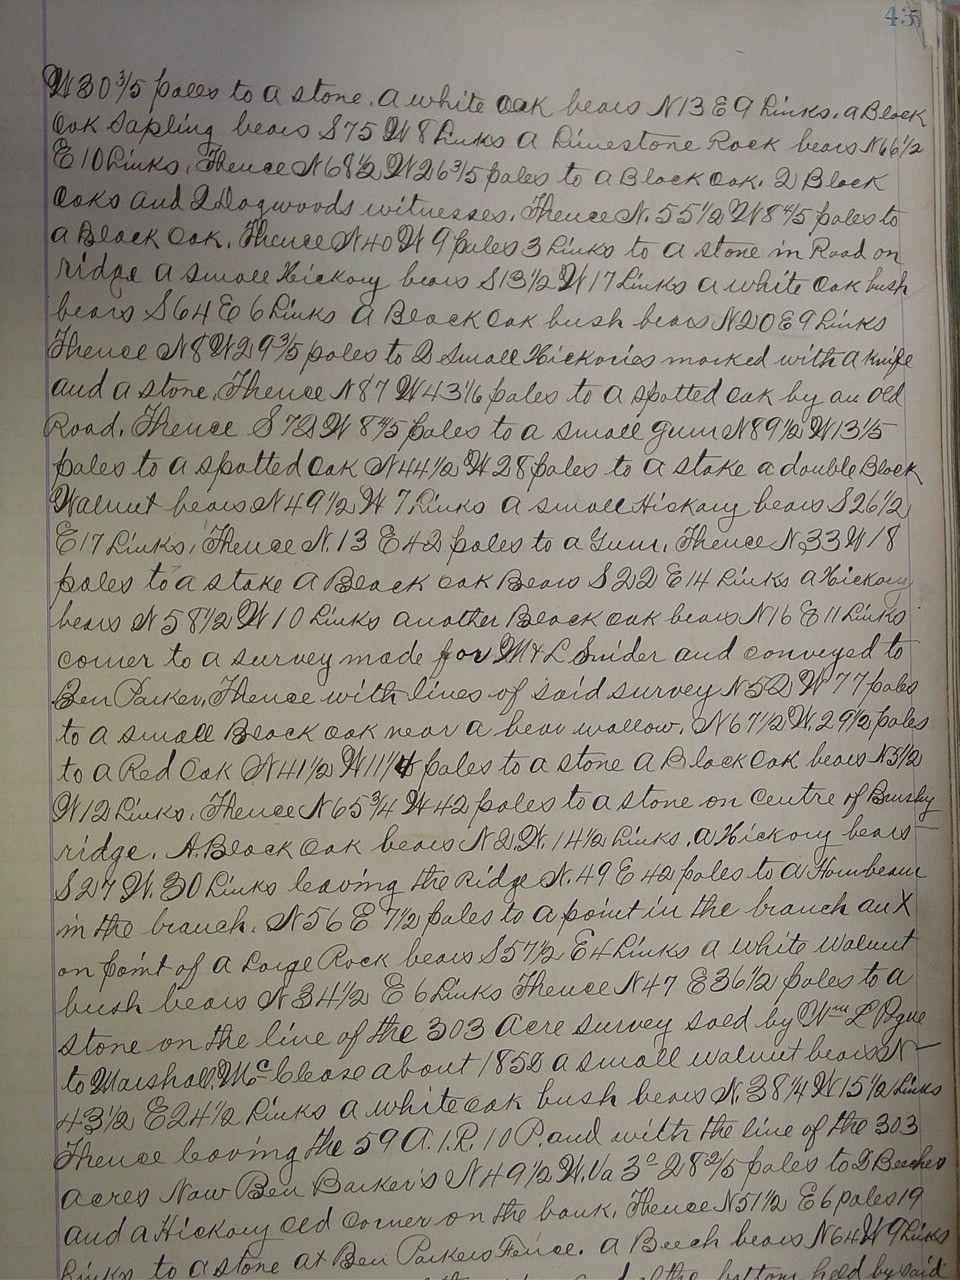 43
W 30 3/5 poles to a stone. a white oak bears N 13 E 9 Links. a Black
oak Sapling bears S 75 W 8 Links a Limestone Rock bears N 66 1/2
E 10 Links. Thence N 68 1/2 W 26 3/5 poles to a Black oak. 2 Black
oaks and 2 Dogwoods witnesses. Thence N. 55 1/2 W 8 4/5 poles to
a Black oak. Thence N 40 W 9 poles 3 Links to a stone in Road on
ridge a small Hickory bears S 13 1/2 W 17 Links a white oak bush
bears S 64 E 6 Links a Black oak bush bears N 20 E 9 Links
Thence N 8 W 29 3/5 poles to 2 Small Hickories marked with a knife
and a stone. Thence N 87 W 43 1/6 poles to a spotted oak by an old
Road. Thence S 72 W 8 4/5 poles to a small gum N 89 1/2 W 13 1/5
poles to a spotted oak N 44 1/2 W 28 poles to a stake a double Black
Walnut bears N 49 1/2 W 7 Links a small Hickory bears S 26 1/2
E 17 Links. Thence N. 13 E 42 poles to a Gum. Thence N. 33 W 18
poles to a stake a Black oak Bears S 22 E 14 Links a Hickory
bears N 58 1/2 W 10 Links another Black oak bears N 16 E 11 Links
corner to a survey made for M & L Snider and conveyed to
Ben Parker. Thence with lines of said survey N 52 W 77 poles
to a small Black oak near a bear wallow. N 67 1/2 W. 29 1/2 poles
to a Red Oak N 41 1/2 W 11 1/4 poles to a stone a Black oak bears N 5 1/2
W 12 Links. Thence N 65 3/4 W 42 poles to a stone on centre of Brushy
ridge. A. Black oak bears N 2. W. 14 1/2 Links. a Hickory bears
S 27 W. 30 Links leaving the Ridge N. 49 E 42 poles to a Hornbeam
in the branch. N 56 E 7 1/2 poles to a point in the branch an X
on point of a Large Rock bears S 57 1/2 E 4 Links a white Walnut
bush bears N 34 1/2 E 6 Links Thence N 47 E 36 1/2 poles to a
stone on the line of the 303 Acre survey sold by Wm L Pogue
to Marshall Mc Clease about 1852 a small walnut bears N -
43 1/2 E 24 1/2 Links a white oak bush bears N. 38 1/4 W 15 1/2 Links
Thence leaving the 59 A. 1. R. 10 P. and with the line of the 303
acres Now Ben Barker's N 49 1/2 W. Va 3° 28 2/5 poles to 2 Beeches
and a Hickory old corner on the bank. Thence N 51 1/2 E 6 poles 19
Links to a stone at Ben Parkers Fence. a Beech bears N 64 W 9 Links
the bottom held by said